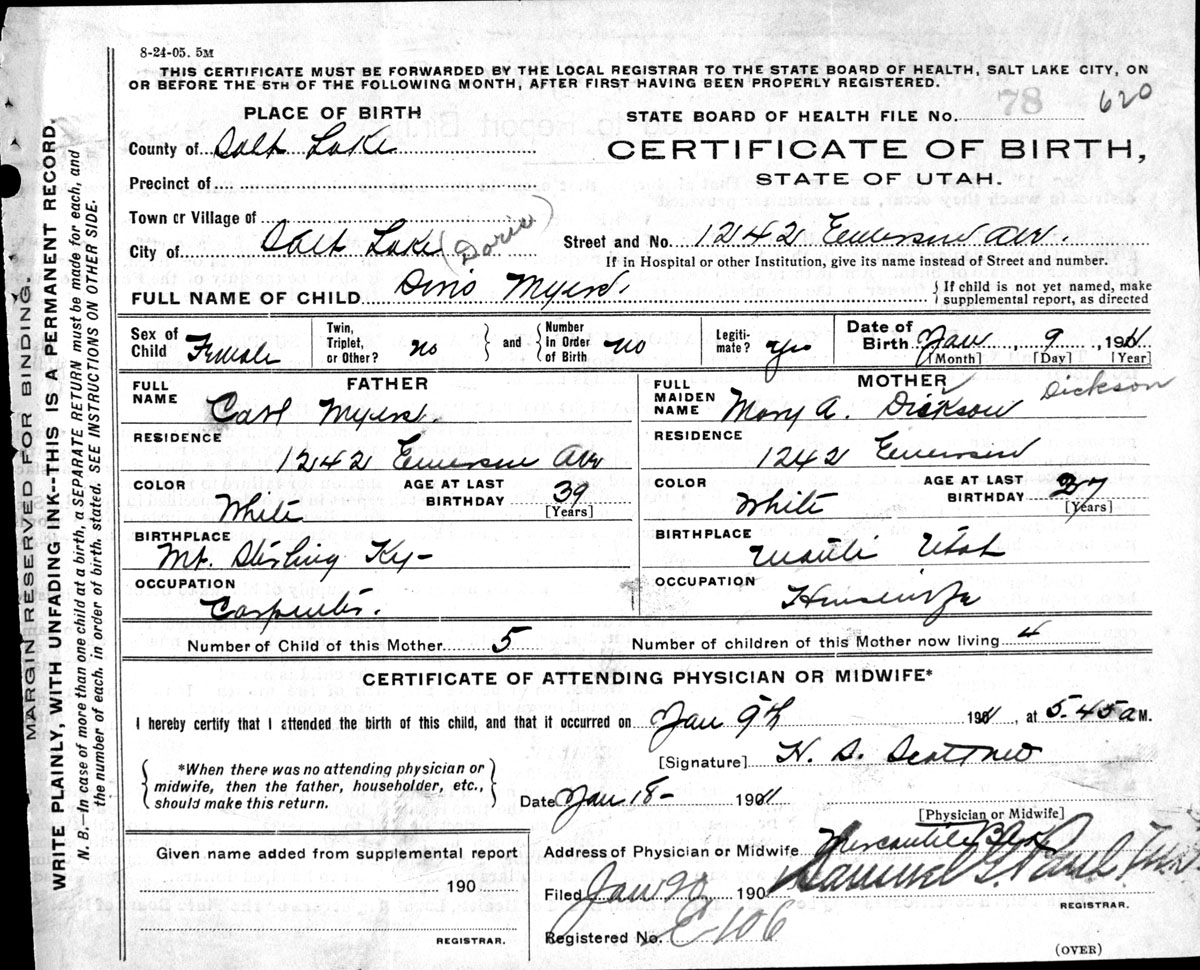 8-24-05. 5M
THIS CERTIFICATE MUST BE FORWARDED BY THE LOCAL REGISTRAR TO THE STATE BOARD OF HEALTH, SALT LAKE CITY, ON
OR BEFORE THE 5TH OF THE FOLLOWING MONTH, AFTER FIRST HAVING BEEN PROPERLY REGISTERED.
78 620
PLACE OF BIRTH
STATE BOARD OF HEALTH FILE No.
County of Salt Lake
CERTIFICATE OF BIRTH,
Precinct of
STATE OF UTAH.
Town or Village of
City of Salt Lake (Doris) Street and No. 1242 Emerson Ave.
If in Hospital or other Institution, give its name instead of Street and number.
FULL NAME OF CHILD Myers. { If child is not yet named, make
supplemental report, as directed
Sex of Child Female Twin, Triplet, or Other? no } and { Number in Order of Birth no Legiti- mate? Yes Date of Birth Jan 9 1911
[Month] [Day] [Year]
FATHER MOTHER
FULL NAME Carl Myers. FULL MAIDEN NAME Mary A. Dickson Dickson
RESIDENCE RESIDENCE
1242 Emerson Ave 1242 Emerson
COLOR White AGE AT LAST BIRTHDAY 39 [Years] COLOR White AGE AT LAST BIRTHDAY 37 [Years]
BIRTHPLACE BIRTHPLACE
Mt. Sterling Ky- Manti Utah
OCCUPATION OCCUPATION
Carpenter. Housewife
Number of Child of this Mother 5 Number of children of this Mother now living 4
CERTIFICATE OF ATTENDING PHYSICIAN OR MIDWIFE*
I hereby certify that I attended the birth of this child, and that it occurred on Jan 9th 1911, at 5.45 a M.
[Signature] H. S.
{ *When there was no attending physician or
midwife, then the father, householder, etc.,
should make this return. }
Date Jan 18- 1911
[Physician or Midwife]
Address of Physician or Midwife Mercantile Blk
Given name added from supplemental report
190
REGISTRAR.
Filed Jan 20 190 Samuel G. Paul
REGISTRAR.
Registered No. E106
(OVER)
MARGIN RESERVED FOR BINDING
WRITE PLAINLY, WITH UNFADING INK--THIS IS A PERMANENT RECORD.
N. B.—In case of more than one child at a birth, a SEPARATE RETURN must be made for each, and
the number of each, in order of birth, stated. SEE INSTRUCTIONS ON OTHER SIDE.